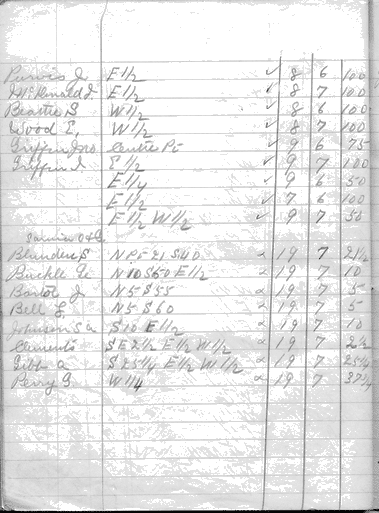 Purvis J E 1/2 ✓ 8 6 100
McDonald J. E 1/2 ✓ 8 7 100
Beattie S W 1/2 ✓ 8 6 100
Wood E, W 1/2 ✓ 8 7 100
Griffin Jno Centre Pt ✓ 9 6 75
Griffin J E 1/2 ✓ 9 7 100
E 1/4 ✓ 9 6 50
E 1/2 ✓ 7 6 100
E 1/2 W 1/2 ✓ 9 7 50
Blunden S N Pt 21 S40 19 7 2 1/2
Buckle Ge N10 S60 E 1/2 19 7 10
J N5 S55 19 7 5
Bell N5 S60 19 7 5
Johnson S a S10 E 1/2 19 7 10
Clements S E 2 1/2 E 1/2 W 1/2 19 7 2 1/2
Gibb a S 25 1/4 E 1/2 W 1/2 19 7 25 1/4
Perry G. W 1/4 19 7 37 1/4